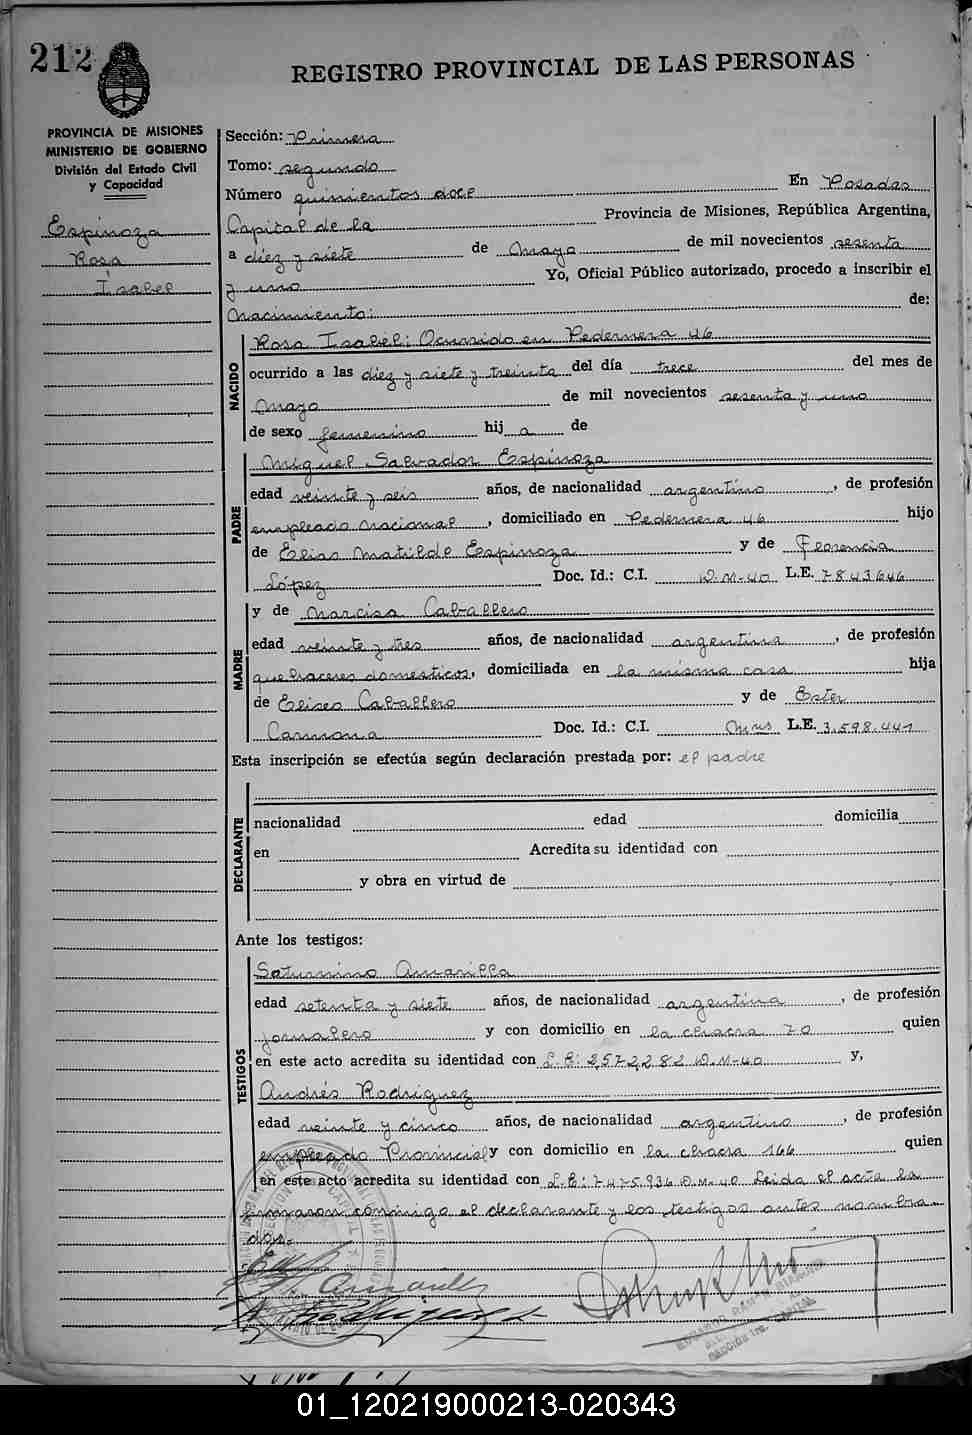 212
REGISTRO PROVINCIAL DE LAS PERSONAS
PROVINCIA DE MISIONES
MINISTERIO DE GOBIERNO
División del Estado Civil
y Capacidad
Espinoza
Rosa
Isabel
Sección: Primera
Tomo: segundo
Número quinientos doce En Posadas
Capital de la Provincia de Misiones, República Argentina,
a diez y siete de Mayo de mil novecientos sesenta
y uno Yo, Oficial Público autorizado, procedo a inscribir el
Nacimiento: de:
NACIDO
Rosa Isabel: Ocurrido en Pedernera 46
ocurrido a las diez y siete y treinta del día trece del mes de
Mayo de mil novecientos sesenta y uno
de sexo femenino hij a de
PADRE
Miguel Salvador Espinoza
edad veinte y seis años, de nacionalidad argentino, de profesión
empleado Nacional, domiciliado en Pedernera 46 hijo
de Elias Matilde Espinoza y de Florencia
López Doc. Id.: C.I. D.M-40 L.E. 7843646
MADRE
y de Narcisa Caballero
edad veinte y tres años, de nacionalidad argentina, de profesión
quehaceres domésticos, domiciliada en la misma casa hija
de Eliseo Caballero y de Ester
Carmona Doc. Id.: C.I. Mns L.E. 3.598.441
Esta inscripción se efectúa según declaración prestada por: el padre
DECLARANTE
nacionalidad edad domicilia
en Acredita su identidad con
y obra en virtud de
Ante los testigos:
TESTIGOS
Saturnino Amarilla
edad setenta y siete años, de nacionalidad argentina, de profesión
jornalero y con domicilio en la chacra 70 quien
en este acto acredita su identidad con L.E: 2,572,282 D.M-40 y,
Andrés Rodriguez
edad veinte y cinco años, de nacionalidad argentino, de profesión
empleado Provincial y con domicilio en la chacra 166 quien
en este acto acredita su identidad con L.E: 7475.936 D.M-40 Leida el acta la
firmaron conmigo el declarante y los testigos antes nombra-
dos.-
01_120219000213-020343